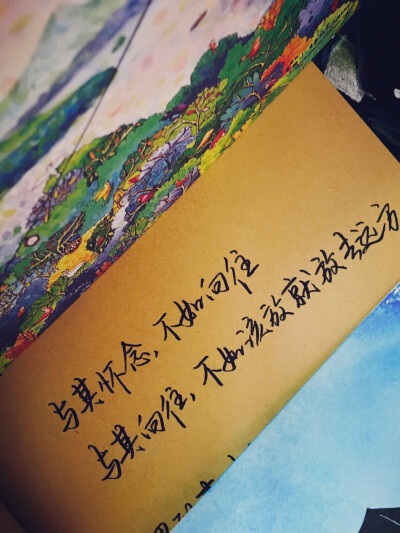 与其怀念，不如向往
与其向往，不如该放就放去远方